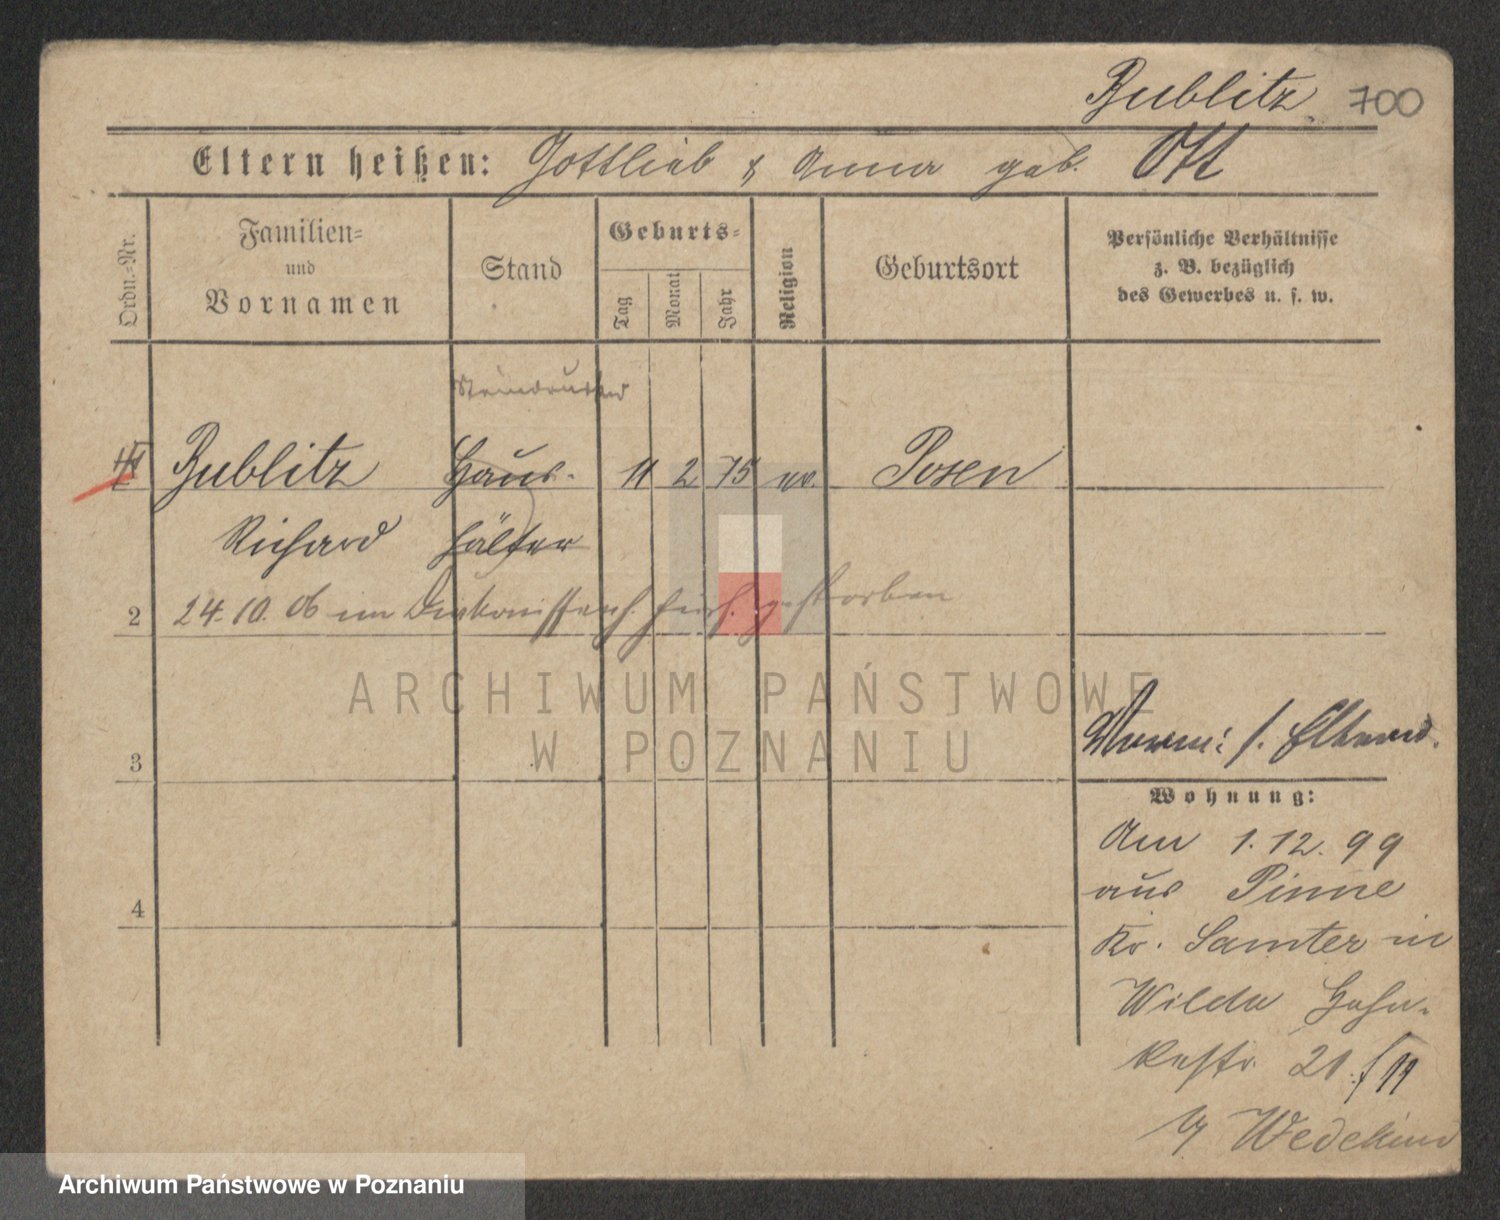 Bublitz 700
Eltern heißen: Gottlieb & Anna geb. Ott
Ordn.=Nr.
Familien=
und
Vornamen
Stand
Geburts=
Tag
Monat
Jahr
Religion
Geburtsort
Persönliche Verhältnisse
z. B. bezüglich
des Gewerbes u. s. w.
Steindrucker
Bublitz Haus- 11 2 75 ev. Posen
Richard hälter
2 24.10.06 im Diakonissenh. hies. gestorben
3
Vorm: s. Elternd.
Wohnung:
Am 1.12.99
aus Pinne
4
Kr. Samter in
Wilda
str. 21
b/ Wedekind
ARCHIWUM PAŃSTWOWE
W POZNANIU
Archiwum Państwowe w Poznaniu